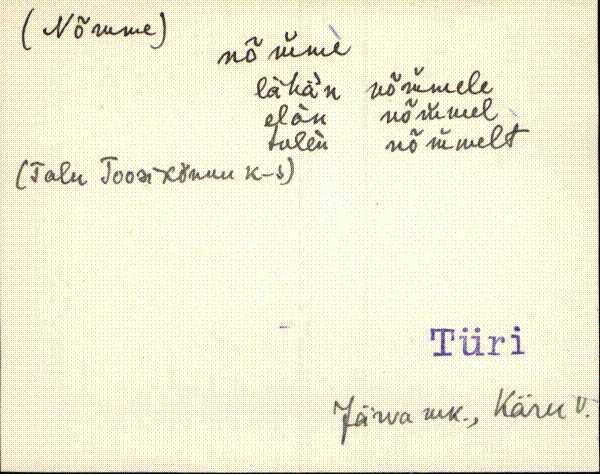 (Nõmme)
nõm̆me
lähä̀n nõm̆mele
elàn nõm̆mel
tulen nõm̆melt
(Talu Toosikõnnu k-s)
Türi
Järva mk., Käru v.